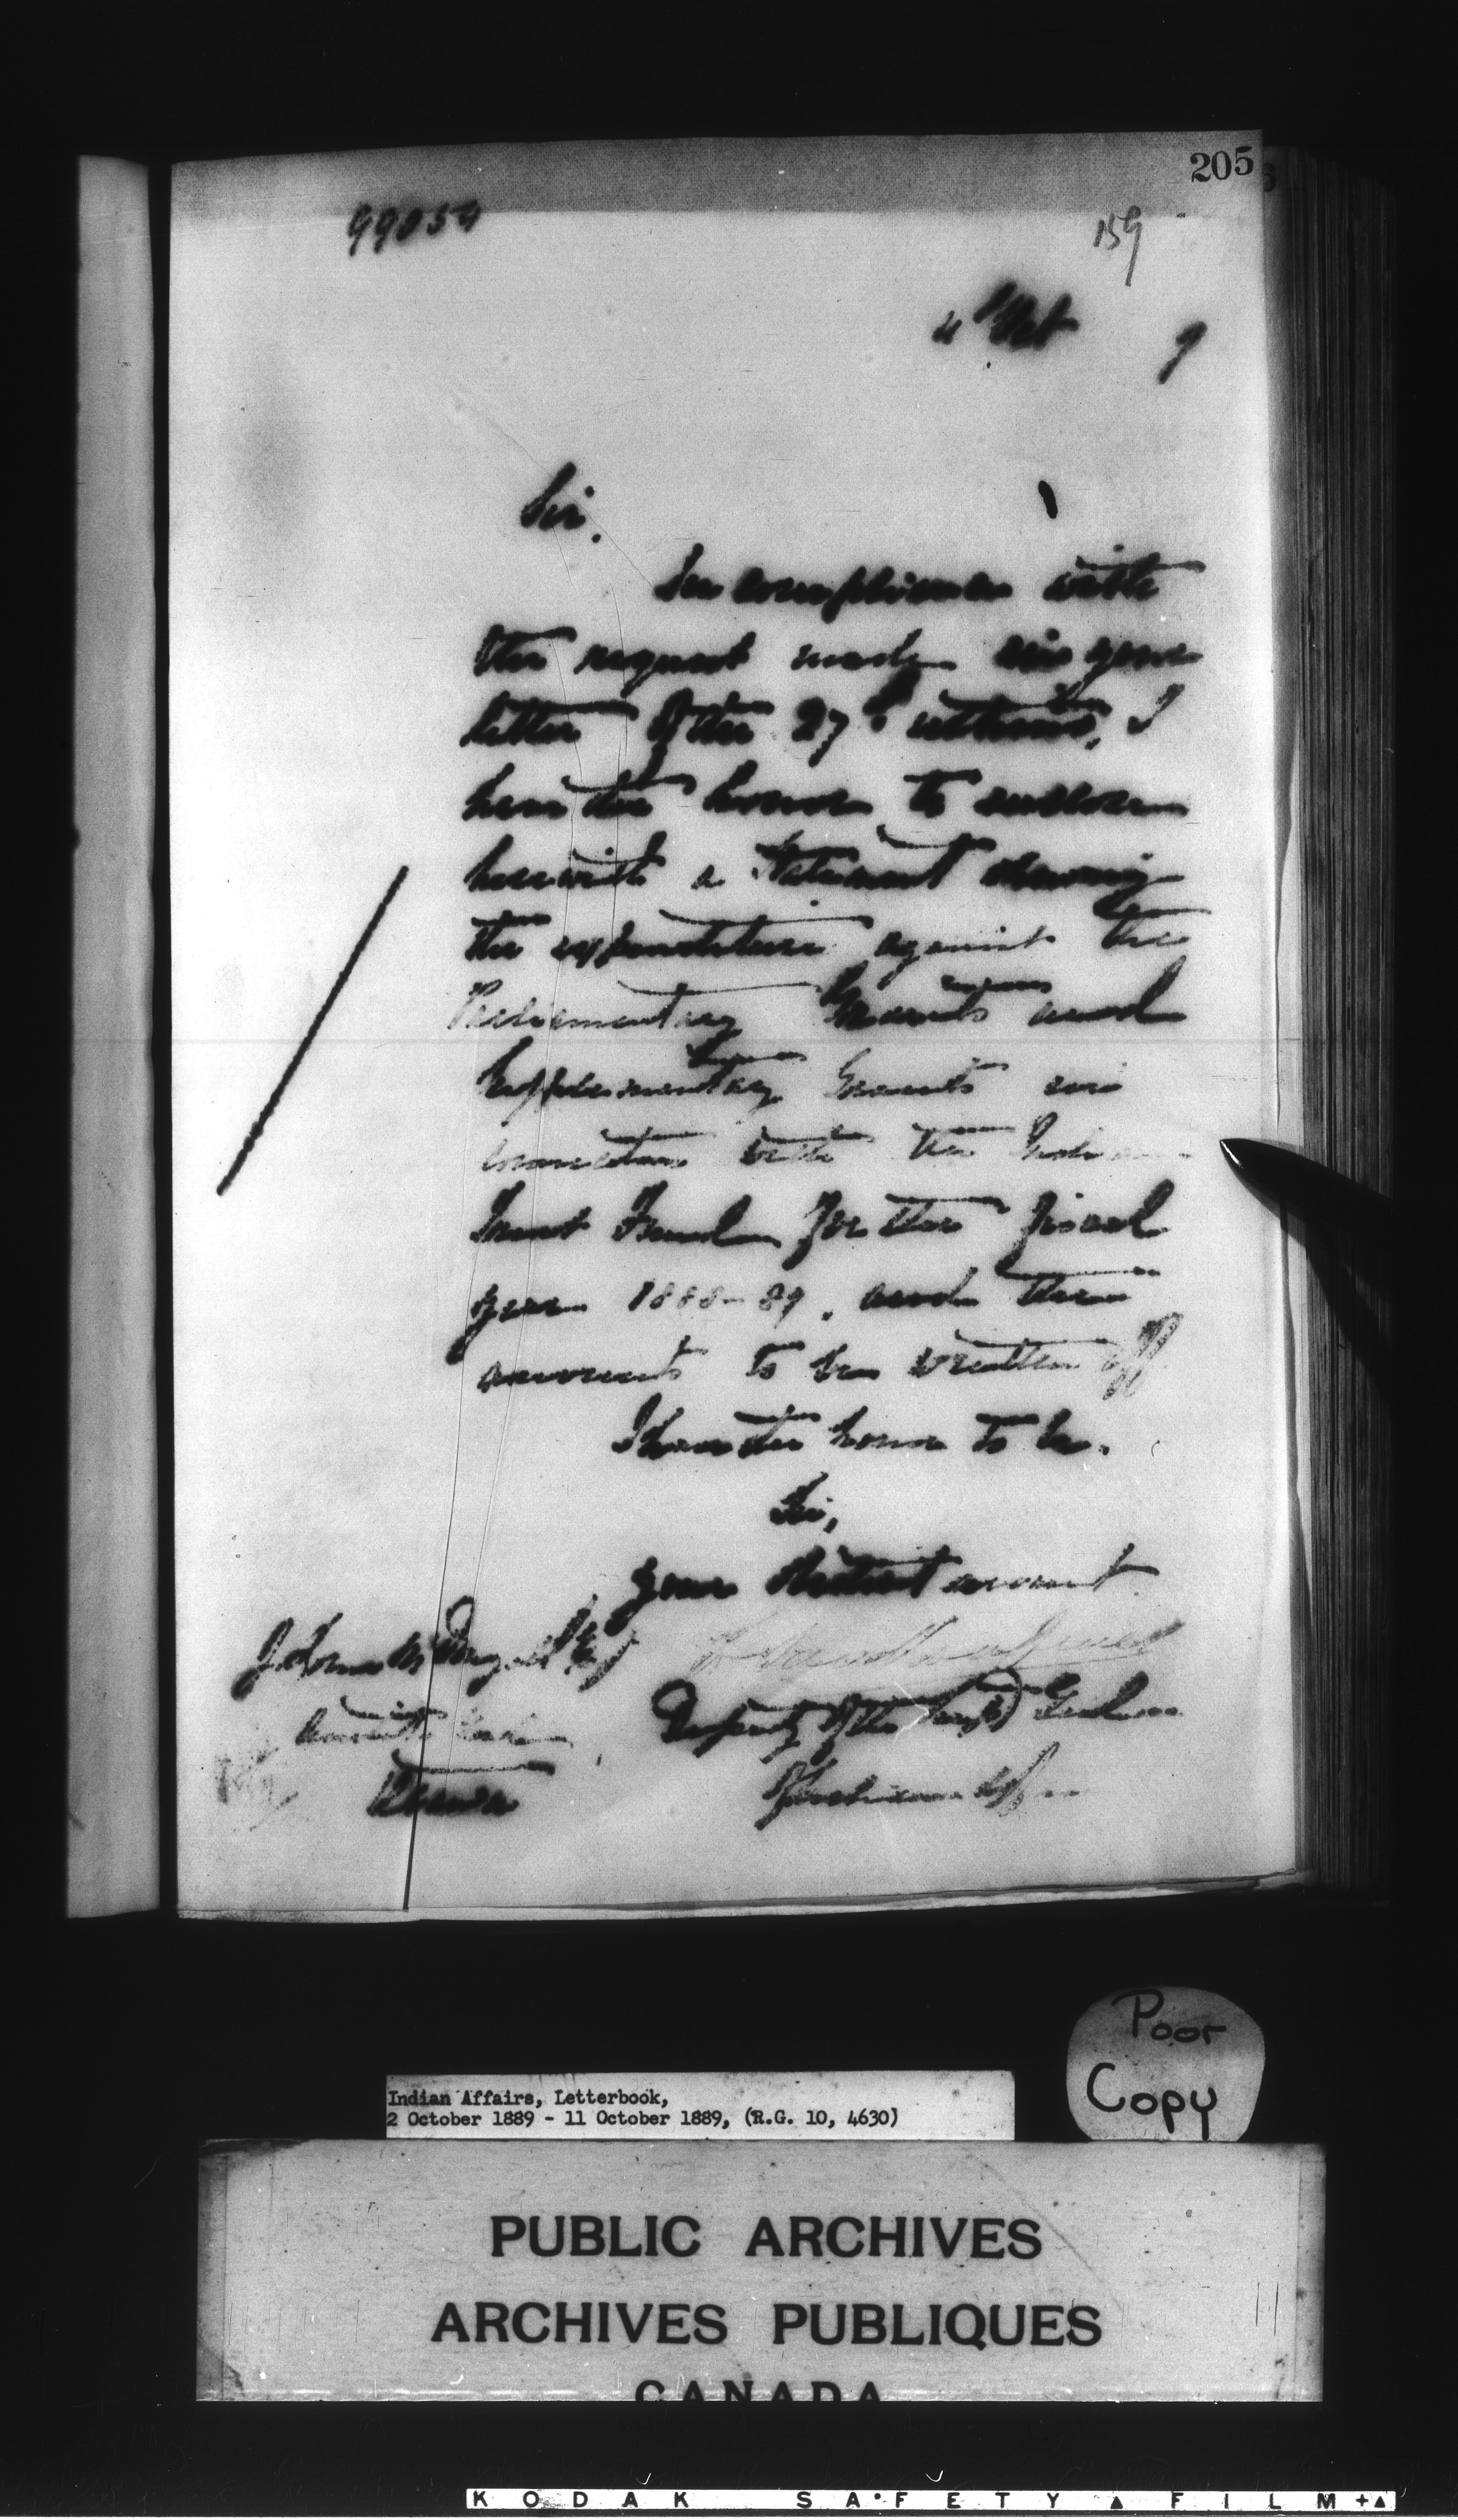 205
99054
159
4 Oct 9
Sir.
In compliance with
the request made in your
letter of the 27th ultimo, I
have the honor to enclose
herewith a Statement showing
the expenditure against the
Parliamentary Grants and
Supplementary Grants in
connection with the Indian
Trust Fund for the fiscal
year 1888-89, and the
amounts to be written off
I have the honor to be.
Sir,
Your obedient servant
J. Lorne McDougall Esq
L. Vankoughnet
Deputy of the Supt Genl
of Indian Affairs
Ottawa
Poor
Copy
Indian Affairs, Letterbook,
2 October 1889 - 11 October 1889, (R.G. 10, 4630)
PUBLIC ARCHIVES
ARCHIVES PUBLIQUES
CANADA
KODAK SAFETY FILM